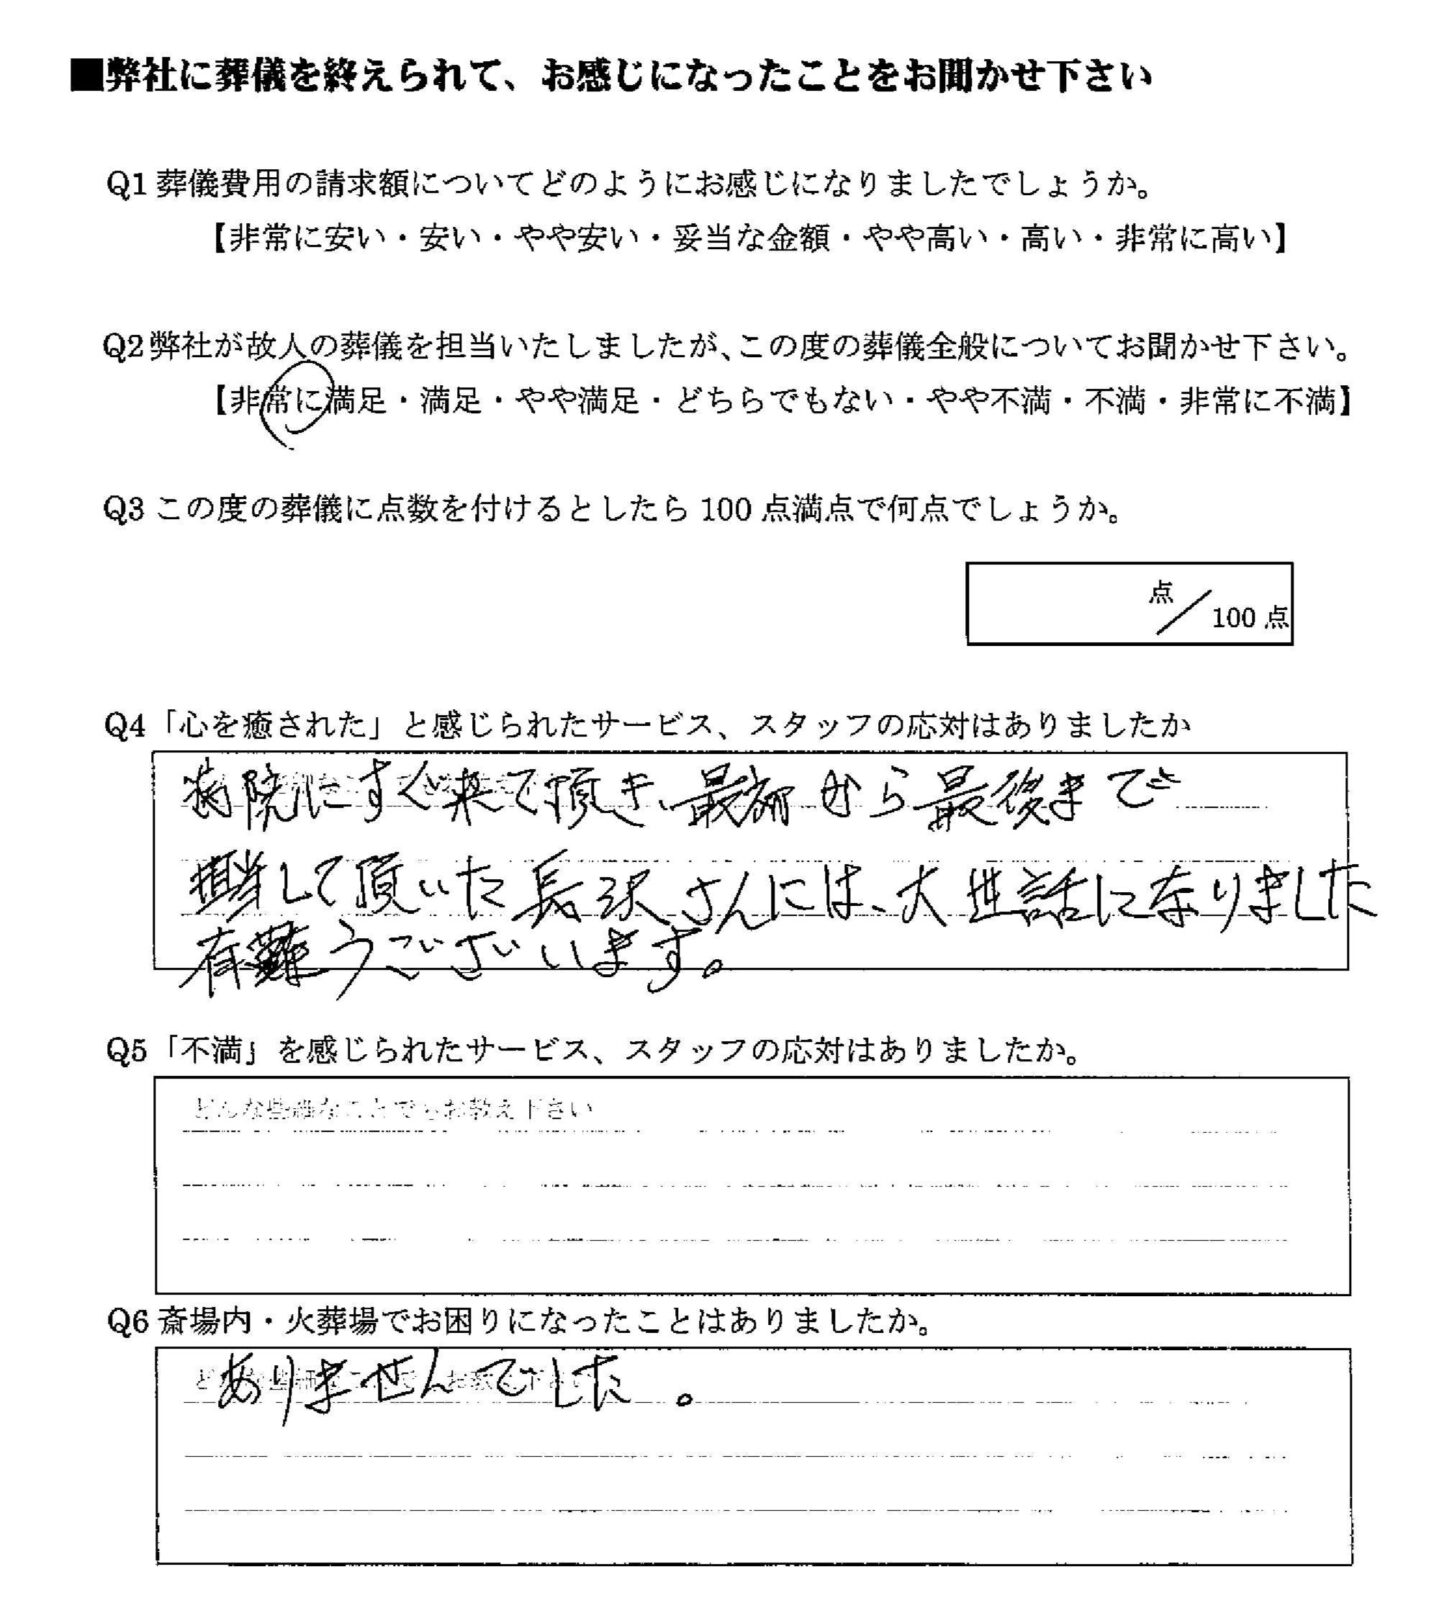 ■弊社に葬儀を終えられて、お感じになったことをお聞かせ下さい
Q1 葬儀費用の請求額についてどのようにお感じになりましたでしょうか。
【非常に安い・安い・やや安い・妥当な金額・やや高い・高い・非常に高い】
Q2 弊社が故人の葬儀を担当いたしましたが、この度の葬儀全般についてお聞かせ下さい。
【非常に満足・満足・やや満足・どちらでもない・やや不満・不満・非常に不満】
Q3 この度の葬儀に点数を付けるとしたら 100 点満点で何点でしょうか。
点／100 点
Q4「心を癒された」と感じられたサービス、スタッフの応対はありましたか
病院にすぐ来て頂き、最初から最後まで
担当して頂いた長沢さんには、大世話になりました
有難うございます。
Q5「不満」を感じられたサービス、スタッフの応対はありましたか。
どんな些細なことでもお教え下さい
Q6 斎場内・火葬場でお困りになったことはありましたか。
ありませんでした。